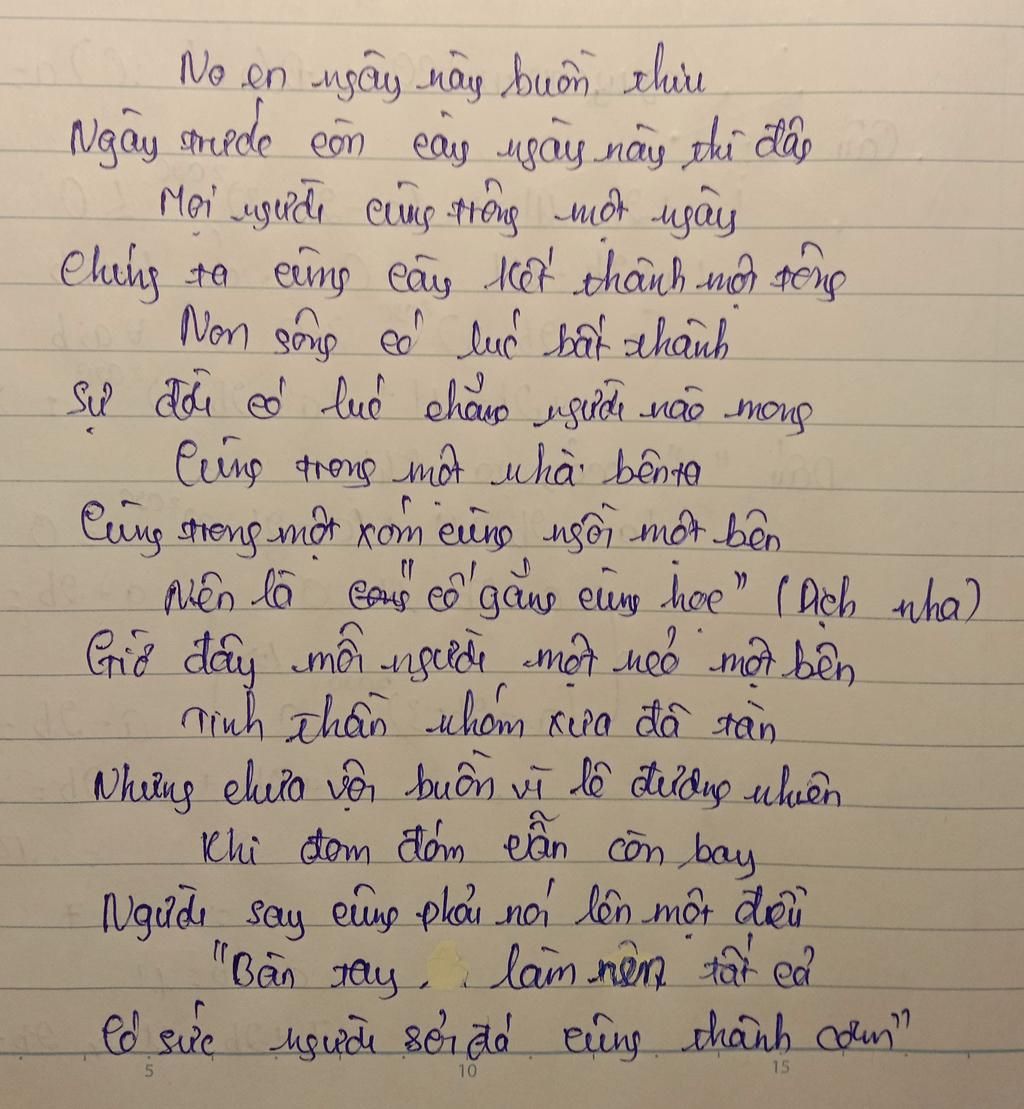 No en ngày này buồn thiu
Ngày trước còn cày ngày này thì đây
Mọi người cùng trông một ngày
Chúng ta cùng cày kết thành một tông
Non sông có lúc bất thành
Sự đời có lúc chẳng người nào mong
Cùng trong một nhà bên ta
Cùng trong một xóm cùng ngồi một bên
Nên là "cố gắng cùng học" (Dịch nha)
Giờ đây mỗi người một neỏ một bên
Tinh thần nhóm xưa đã tàn
Nhưng chưa vội buồn vì lẽ đương nhiên
Khi đom đóm vẫn còn bay
Người say cũng phải nói lên một điều
"Bàn tay làm nên tất cả
Có sức người sỏi đá cũng thành cơm"
5 10 15